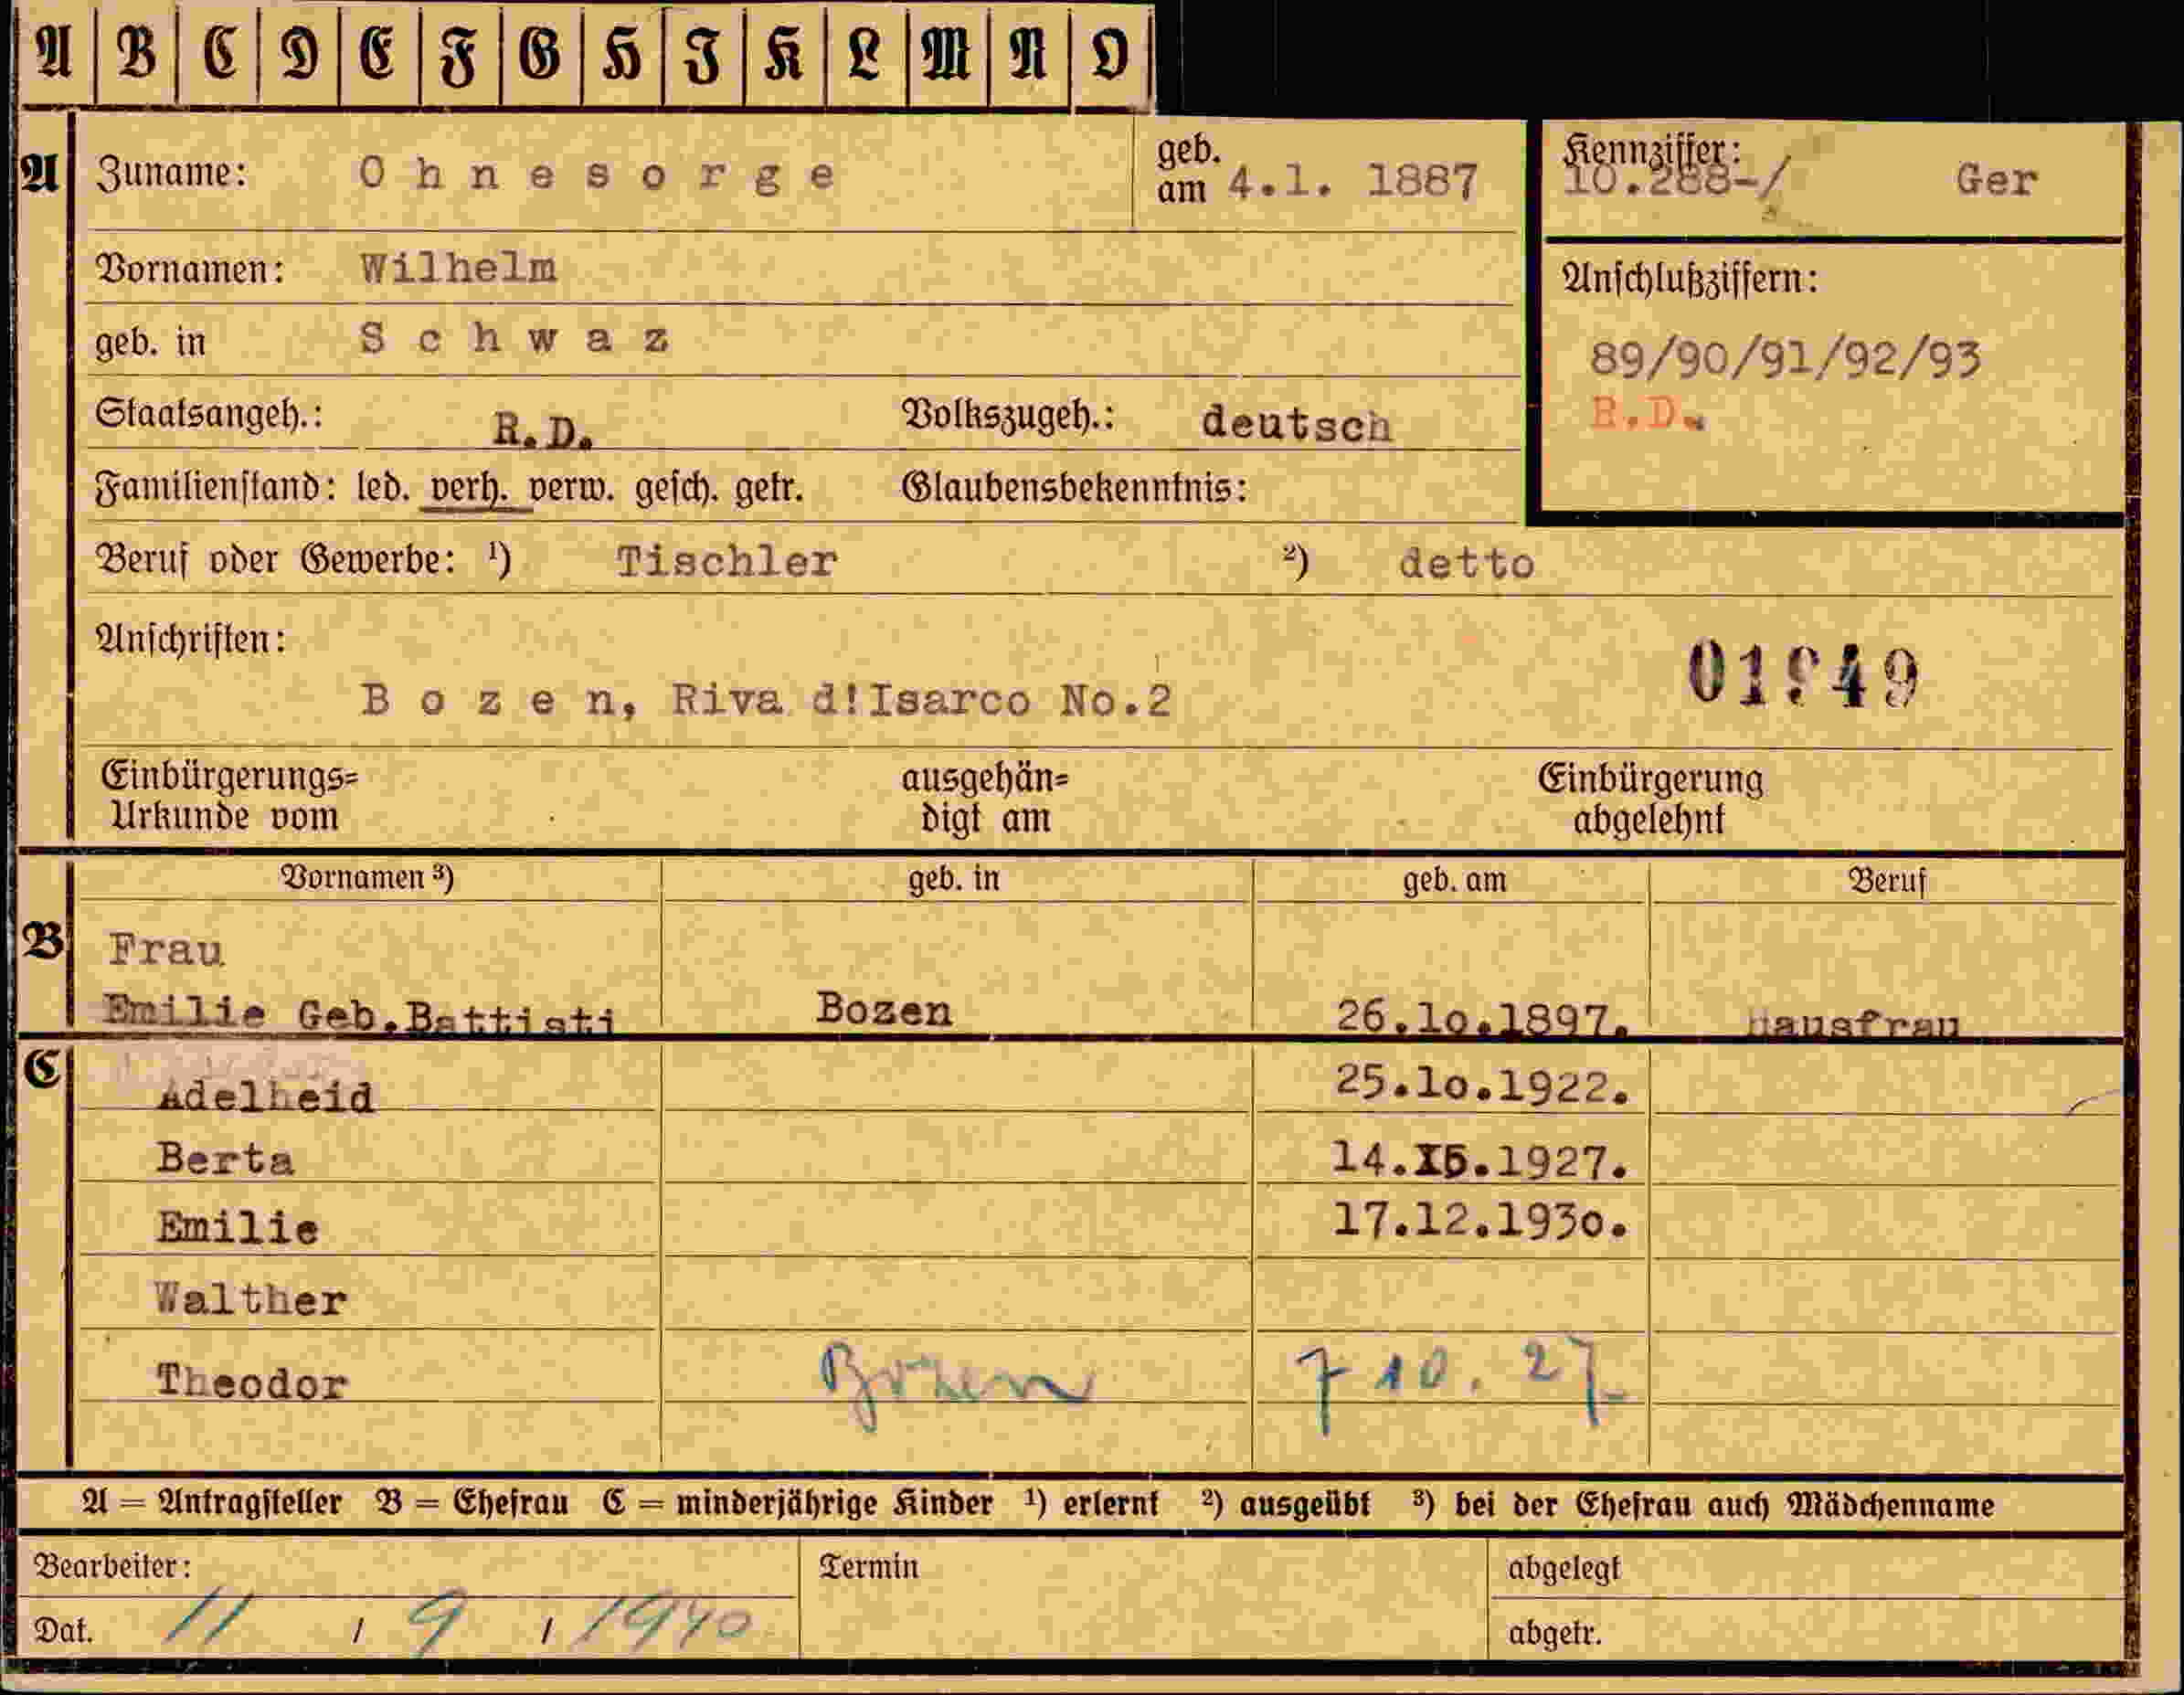 A B C D E F G H I K L M N O
A Zuname: Ohnesorge geb. am 4.1. 1887
Kennziffer: 10.288-/ Ger
Vornamen: Wilhelm
Anschlußziffern:
geb. in Schwaz
89/90/91/92/93
Staatsangeh.: R.D. Volkszugeh.: deutsch
R.D.
Familienstand: led. verh. verw. gesch. getr. Glaubensbekenntnis:
Beruf oder Gewerbe: ¹) Tischler ²) detto
Anschriften:
Bozen, Riva d!Isarco No.2
Einbürgerungs= ausgehän= Einbürgerung
Urkunde vom digt am abgelehnt
Vornamen ³) geb. in geb. am Beruf
B Frau
Emilie Geb.Battisti Bozen 26.10.1897. Hausfrau
C Adelheid 25.10.1922.
Berta 1927.
Emilie 17.12.1930.
Walther
Theodor Bozen 7 10. 27.
A = Antragsteller B = Ehefrau C = minderjährige Kinder ¹) erlernt ²) ausgeübt ³) bei der Ehefrau auch Mädchenname
Bearbeiter: Termin abgelegt
Dat. 11 / 9 / 1940 abgetr.